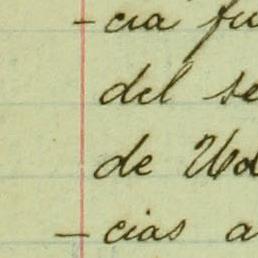 -cia fu
del se
de Ud
-cias a